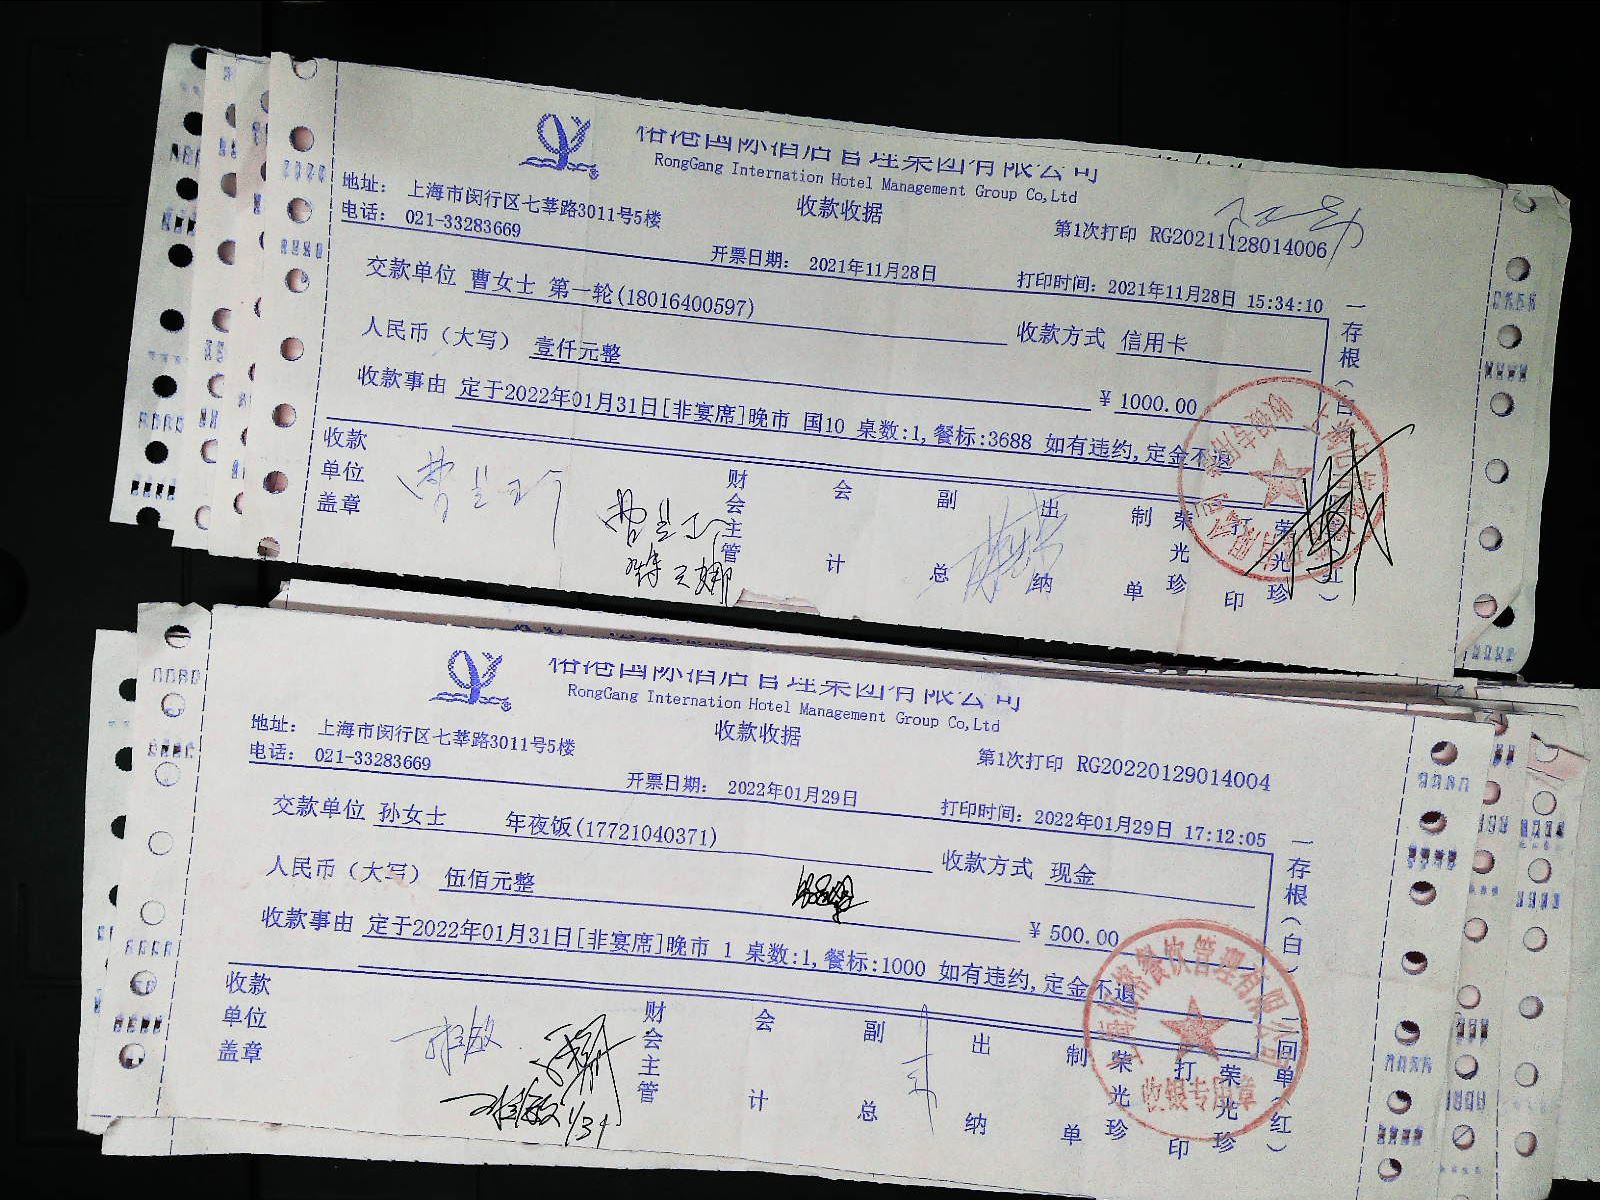 国际酒店管理集团有限公司
RongGang International Hotel Management Group Co,Ltd
收款收据
地址: 上海市闵行区七莘路3011号5楼
电话: 021-33283669
第1次打印 RG20211128014006
开票日期: 2021年11月28日
打印时间: 2021年11月28日 15:34:10
交款单位 曹女士 第一轮(18016400597)
收款方式 信用卡
人民币(大写) 壹仟元整
¥ 1000.00
收款事由 定于2022年01月31日[非宴席]晚市 国10 桌数:1,餐标:3688 如有违约,定金不退
收款单位盖章
财会主管
会计
副总
出纳
制单
荣光珍
打印
荣光珍
一存根(白)
红)
国际酒店管理集团有限公司
RongGang International Hotel Management Group Co,Ltd
收款收据
地址: 上海市闵行区七莘路3011号5楼
电话: 021-33283669
第1次打印 RG20220129014004
开票日期: 2022年01月29日
打印时间: 2022年01月29日 17:12:05
交款单位 孙女士 年夜饭(17721040371)
收款方式 现金
人民币(大写) 伍佰元整
¥ 500.00
收款事由 定于2022年01月31日[非宴席]晚市 1 桌数:1,餐标:1000 如有违约,定金不退
收款单位盖章
财会主管
会计
副总
出纳
制单
荣光珍
打印
荣光珍
一存根(白)二回单(红)
餐饮管理有限公司
收银专用章